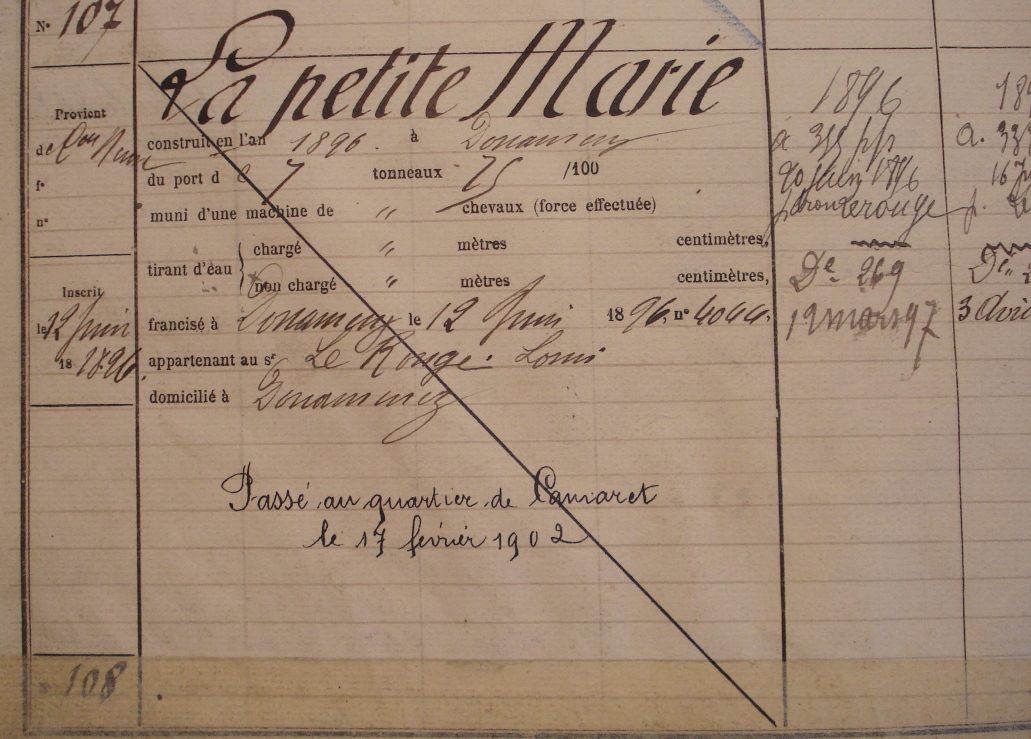 N° 107
La petite Marie
Provient
de Con Neuve
f°
n°
Inscrit
le 12 Juin
18 1896
construit en l'an 1896. à Douarnenez
du port de 7 tonneaux 75 /100
muni d'une machine de " chevaux (force effectuée)
tirant d'eau { chargé " mètres centimètres,
non chargé " mètres centimètres,
francisé à Douarnenez le 12 Juin 1896, n° 4044.
appartenant au sr Le Rouge Louis
domicilié à Douarnenez
Passé au quartier de Camaret
le 17 février 1902
1896
à
20 Juin 1896
Lerouge
De 269
19 mars 97
A.
De
3
108